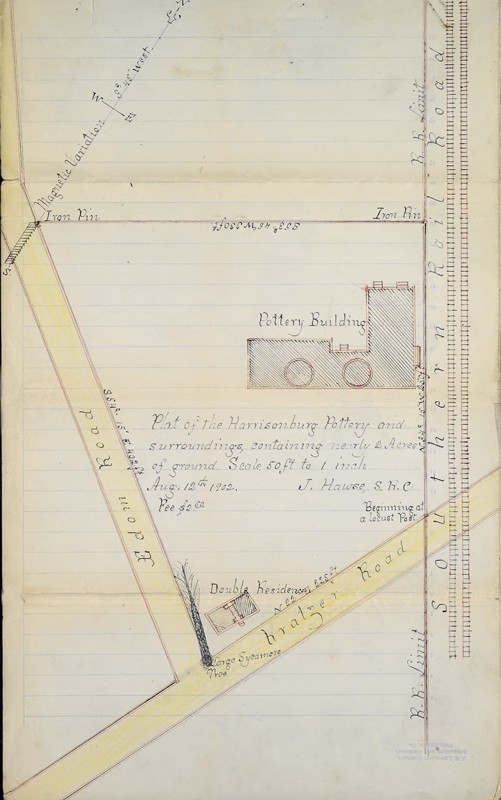 S 2° 45' West.
W
E
S
Magnetic Variation
Iron Pin
Iron Pin
S 53° 45' W 330 ft
R. R. Limit
Southern Rail Road
Pottery Building
Plat of the Harrisonburg Pottery and
surroundings, containing nearly 2 Acres
of ground. Scale, 50 ft to 1 inch
Aug. 12th 1902. J. Hawse, S. R. C
Fee $2.50
Beginning at
a locust Post
Edom Road
Double Residence
Kratzer Road
Large Sycamore
Tree
R. R. Limit